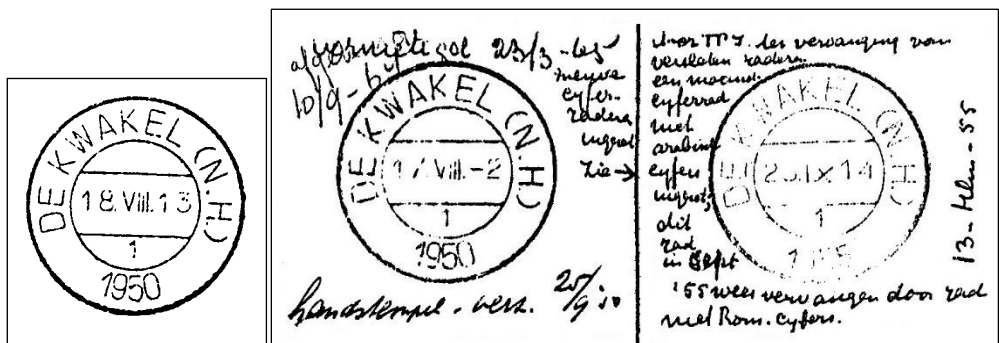 DE KWAKEL (N.H.)
18.VIII.13
1
1950
23/3
10/9
nieuwe
cyfer-
raderen
ingezet
Zie →
DE KWAKEL (N.H.)
17.VIII.-2
1
1950
handstempel - verz. 25/9
door TPJ. ter vervanging van
versleten raderen
een maand-
cyferrad
met
arabische
cyfers
ingezet;
dit
rad
in Sept
'55 weer vervangen door rad
met Rom. cyfers.
DE KWAKEL (N.H.)
1
13
55